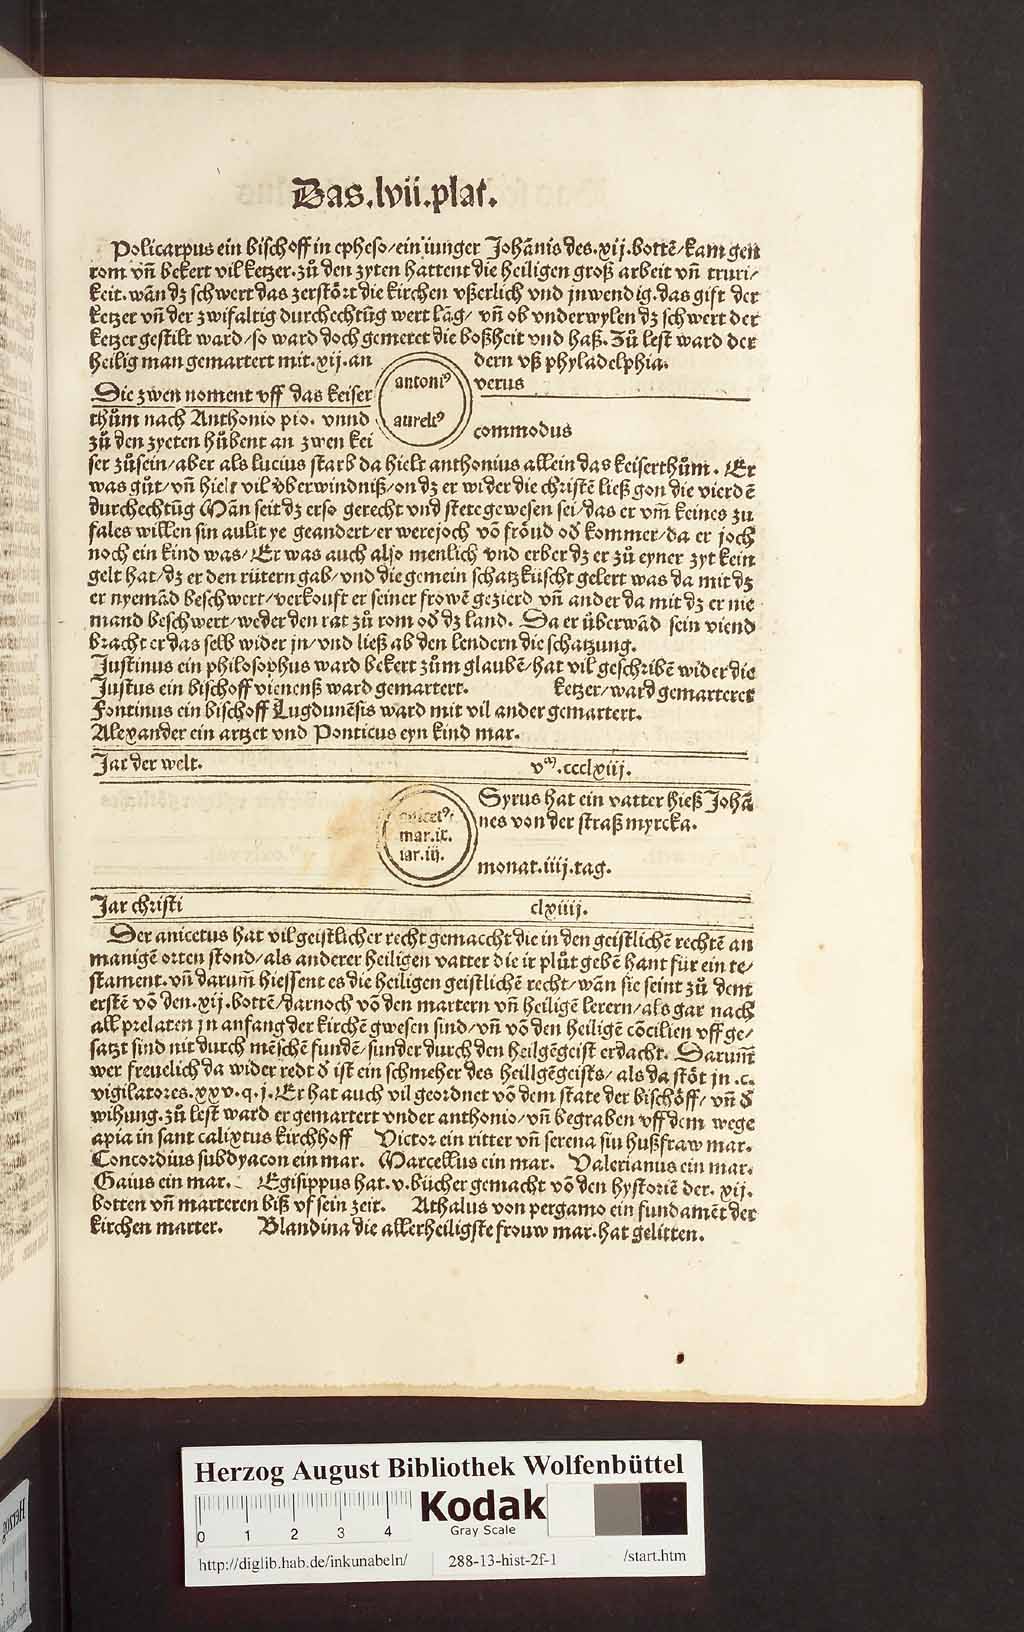 Das.lvii.plat.
Policarpus ein bischoff in epheso/ein iunger Johānis des.xij.bottē/kam gen
rom vñ bekert vil ketzer.zů den zyten hattent die heiligen groß arbeit vñ truri/
keit.wān dz schwert das zerstört die kirchen vßerlich vnd jnwendig.das gift der
ketzer vñ der zwifaltig durchechtūg wert lāg/ vñ ob vnderwylen dz schwert der
ketzer gestilt ward/so ward doch gemeret die boßheit vnd haß. Zů lest ward der
heilig man gemartert mit.xij.an dern vß phyladelphia.
antoniꝰ verus
Die zwen noment vff das keiser
thům nach Anthonio pio. vnnd aureliꝰ
commodus
zů den zyeten hůbent an zwen kei
ser zůsein/aber als lucius starb da hielt anthonius allein das keiserthům. Er
was gůt/vñ hielt vil überwindniß/on dz er wider die christē ließ gon die vierdē
durchechtūg Man seit dz er so gerecht vnd stete gewesen sei/das er vm̄ keines zu
fales willen sin aulit ye geandert/er were joch vō fröud od̕ kommer/da er joch
noch ein kind was/ Er was auch also menlich vnd erber dz er zů eyner zyt kein
gelt hat/dz er den rütern gab/vnd die gemein schatz küscht gelert was da mit dz
er nyemād beschwert/verkouft er seiner frowē gezierd vñ ander da mit dz er nie
mand beschwert/weder den rat zů rom od̕ dz land. Da er überwād sein viend
bracht er das selb wider jn/vnd ließ ab den lendern die schatzung.
Justinus ein philosophus ward bekert zům glaubē/hat vil geschribē wider die
Justus ein bischoff vienenß ward gemartert. ketzer/ward gemarteret
Fontinus ein bischoff Lugdunēsis ward mit vil ander gemartert.
Alexander ein artzet vnd Ponticus eyn kind mar.
Jar der welt. vᵐ.ccclxiij.
Syrus hat ein vatter hieß Johā
nes von der straß myrcka.
mar.ix.
iar.iij.
monat.iiij.tag.
Jar christi clxiiij.
Der anicetus hat vil geistlicher recht gemaccht die in den geistlichē rechtē an
manigē orten stond/als anderer heiligen vatter die ir plůt gebē hant für ein te/
stament.vñ darum̄ hiessent es die heiligen geistlichē recht/wān sie seint zů dem
erstē vō den.xij.bottē/darnoch vō den martern vñ heiligē lerern/als gar nach
all prelaten jn anfang der kirchē gwesen sind/vñ vō den heiligē cōcilien vff ge/
satzt sind nit durch mēschē fundē/sunder durch den heilgēgeist erdacht. Darum̄
wer freuelich da wider redt d̕ ist ein schmeher des heillgēgeists/als da stöt jn .c.
vigilatores.xxv.q.j.Er hat auch vil geordnet vō dem state der bischöff/ vñ d̕
wihung.zů lest ward er gemartert vnder anthonio/vñ begraben vff dem wege
apia in sant calixtus kirchhoff Victor ein ritter vñ serena sin hußfraw mar.
Concordius subdyacon ein mar. Marcellus ein mar. Valerianus ein mar.
Gaius ein mar. Egisippus hat.v.bücher gemacht vō den hystoriē der. xij.
botten vñ marteren biß vf sein zeit. Athalus von pergamo ein fundamēt der
kirchen marter. Blandina die allerheiligste frouw mar.hat gelitten.
Herzog August Bibliothek Wolfenbüttel
0 1 2 3 4
Kodak
Gray Scale
http://diglib.hab.de/inkunabeln/ 288-13-hist-2f-1 /start.htm